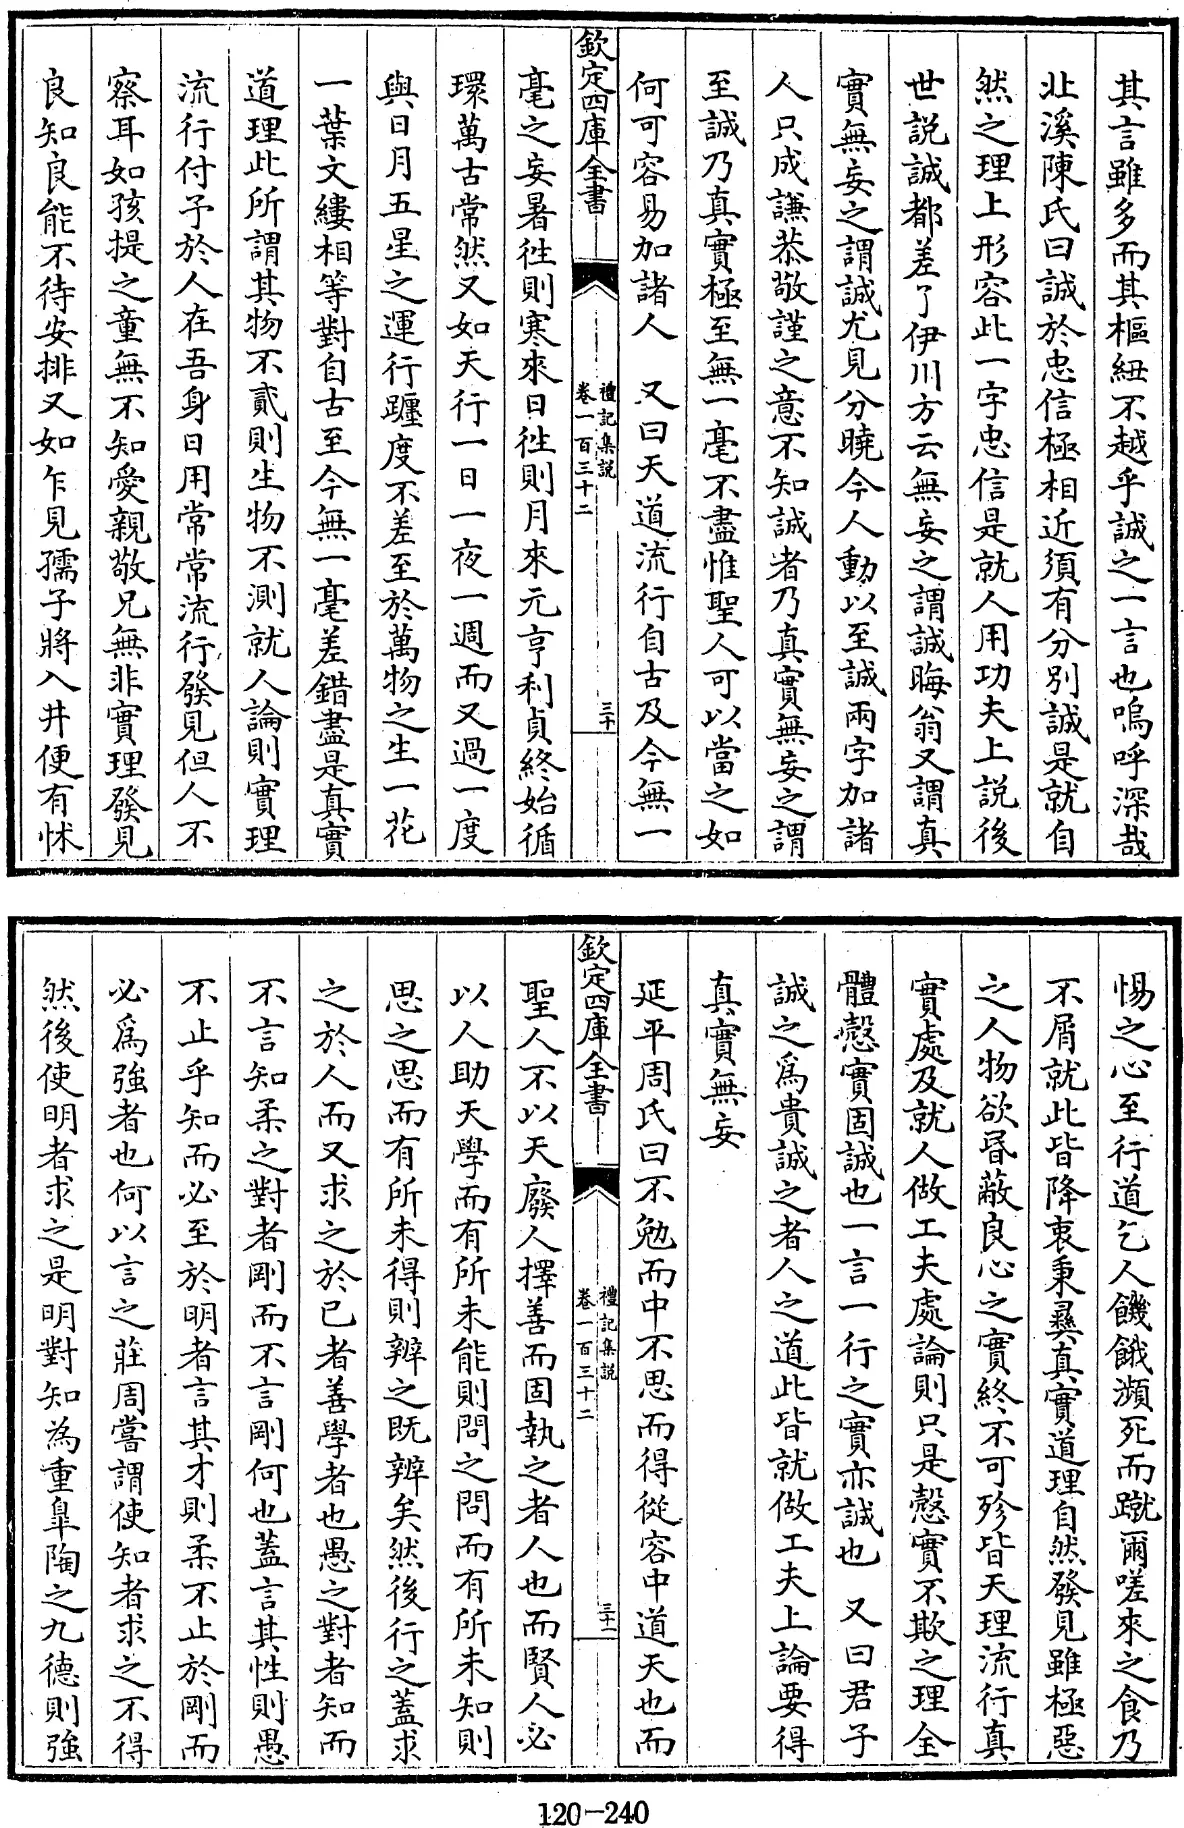 其言雖多而其樞紐不越乎誠之一言也嗚呼深哉
北溪陳氏曰誠於忠信極相近須有分别誠是就自
然之理上形容此一字忠信是就人用功夫上説後
世説誠都差了伊川方云無妄之謂誠晦翁又謂真
實無妄之謂誠尤見分曉今人動以至誠兩字加諸
人只成謙恭敬謹之意不知誠者乃真實無妄之謂
至誠乃真實極至無一毫不盡惟聖人可以當之如
何可容易加諸人　又曰天道流行自古及今無一
欽定四庫全書
禮記集説
卷一百三十二
三十
毫之妄暑徃則寒來日徃則月來元亨利貞終始循
環萬古常然又如天行一日一夜一週而又過一度
與日月五星之運行躔度不差至於萬物之生一花
一葉文縷相等對自古至今無一毫差錯盡是真實
道理此所謂其物不貳則生物不測就人論則實理
流行付予於人在吾身日用常常流行發見但人不
察耳如孩提之童無不知愛親敬兄無非實理發見
良知良能不待安排又如乍見孺子將入井便有怵
惕之心至行道乞人饑餓瀕死而蹴爾嗟來之食乃
不屑就此皆降衷秉彞真實道理自然發見雖極惡
之人物欲昬蔽良心之實終不可殄皆天理流行真
實處及就人做工夫處論則只是慤實不欺之理全
體慤實固誠也一言一行之實亦誠也　又曰君子
誠之為貴誠之者人之道此皆就做工夫上論要得
真實無妄
延平周氏曰不勉而中不思而得從容中道天也而
欽定四庫全書
禮記集説
卷一百三十二
三十一
聖人不以天廢人擇善而固執之者人也而賢人必
以人助天學而有所未能則問之問而有所未知則
思之思而有所未得則辨之既辨矣然後行之蓋求
之於人而又求之於已者善學者也愚之對者知而
不言知柔之對者剛而不言剛何也蓋言其性則愚
不止乎知而必至於明者言其才則柔不止於剛而
必為強者也何以言之莊周嘗謂使知者求之不得
然後使明者求之是明對知為重臯陶之九德則強
120-240